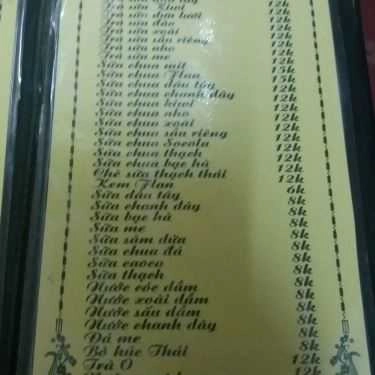 Trà sữa Kiwi 12k
Trà sữa dưa lưới 12k
Trà sữa dâu 12k
Trà sữa xoài 12k
Trà sữa sầu riêng 12k
Trà sữa nho 12k
Trà sữa me 12k
Sữa chua mít 12k
Sữa chua Flan 15k
Sữa chua dâu tây 15k
Sữa chua chanh dây 12k
Sữa chua kiwi 12k
Sữa chua nho 12k
Sữa chua xoài 12k
Sữa chua sầu riêng 12k
Sữa chua Socola 12k
Sữa chua thạch 12k
Sữa chua bạc hà 12k
Chè sữa thạch thái 12k
Kem Flan 6k
Sữa dâu tây 8k
Sữa chanh dây 8k
Sữa bạc hà 8k
Sữa me 8k
Sữa sâm dứa 8k
Sữa chua đá 8k
Sữa cacao 8k
Sữa thạch 8k
Nước cóc dầm 8k
Nước xoài dầm 8k
Nước sấu dầm 8k
Nước chanh dây 8k
Đá me 8k
Bò húc Thái 12k
Trà O 12k